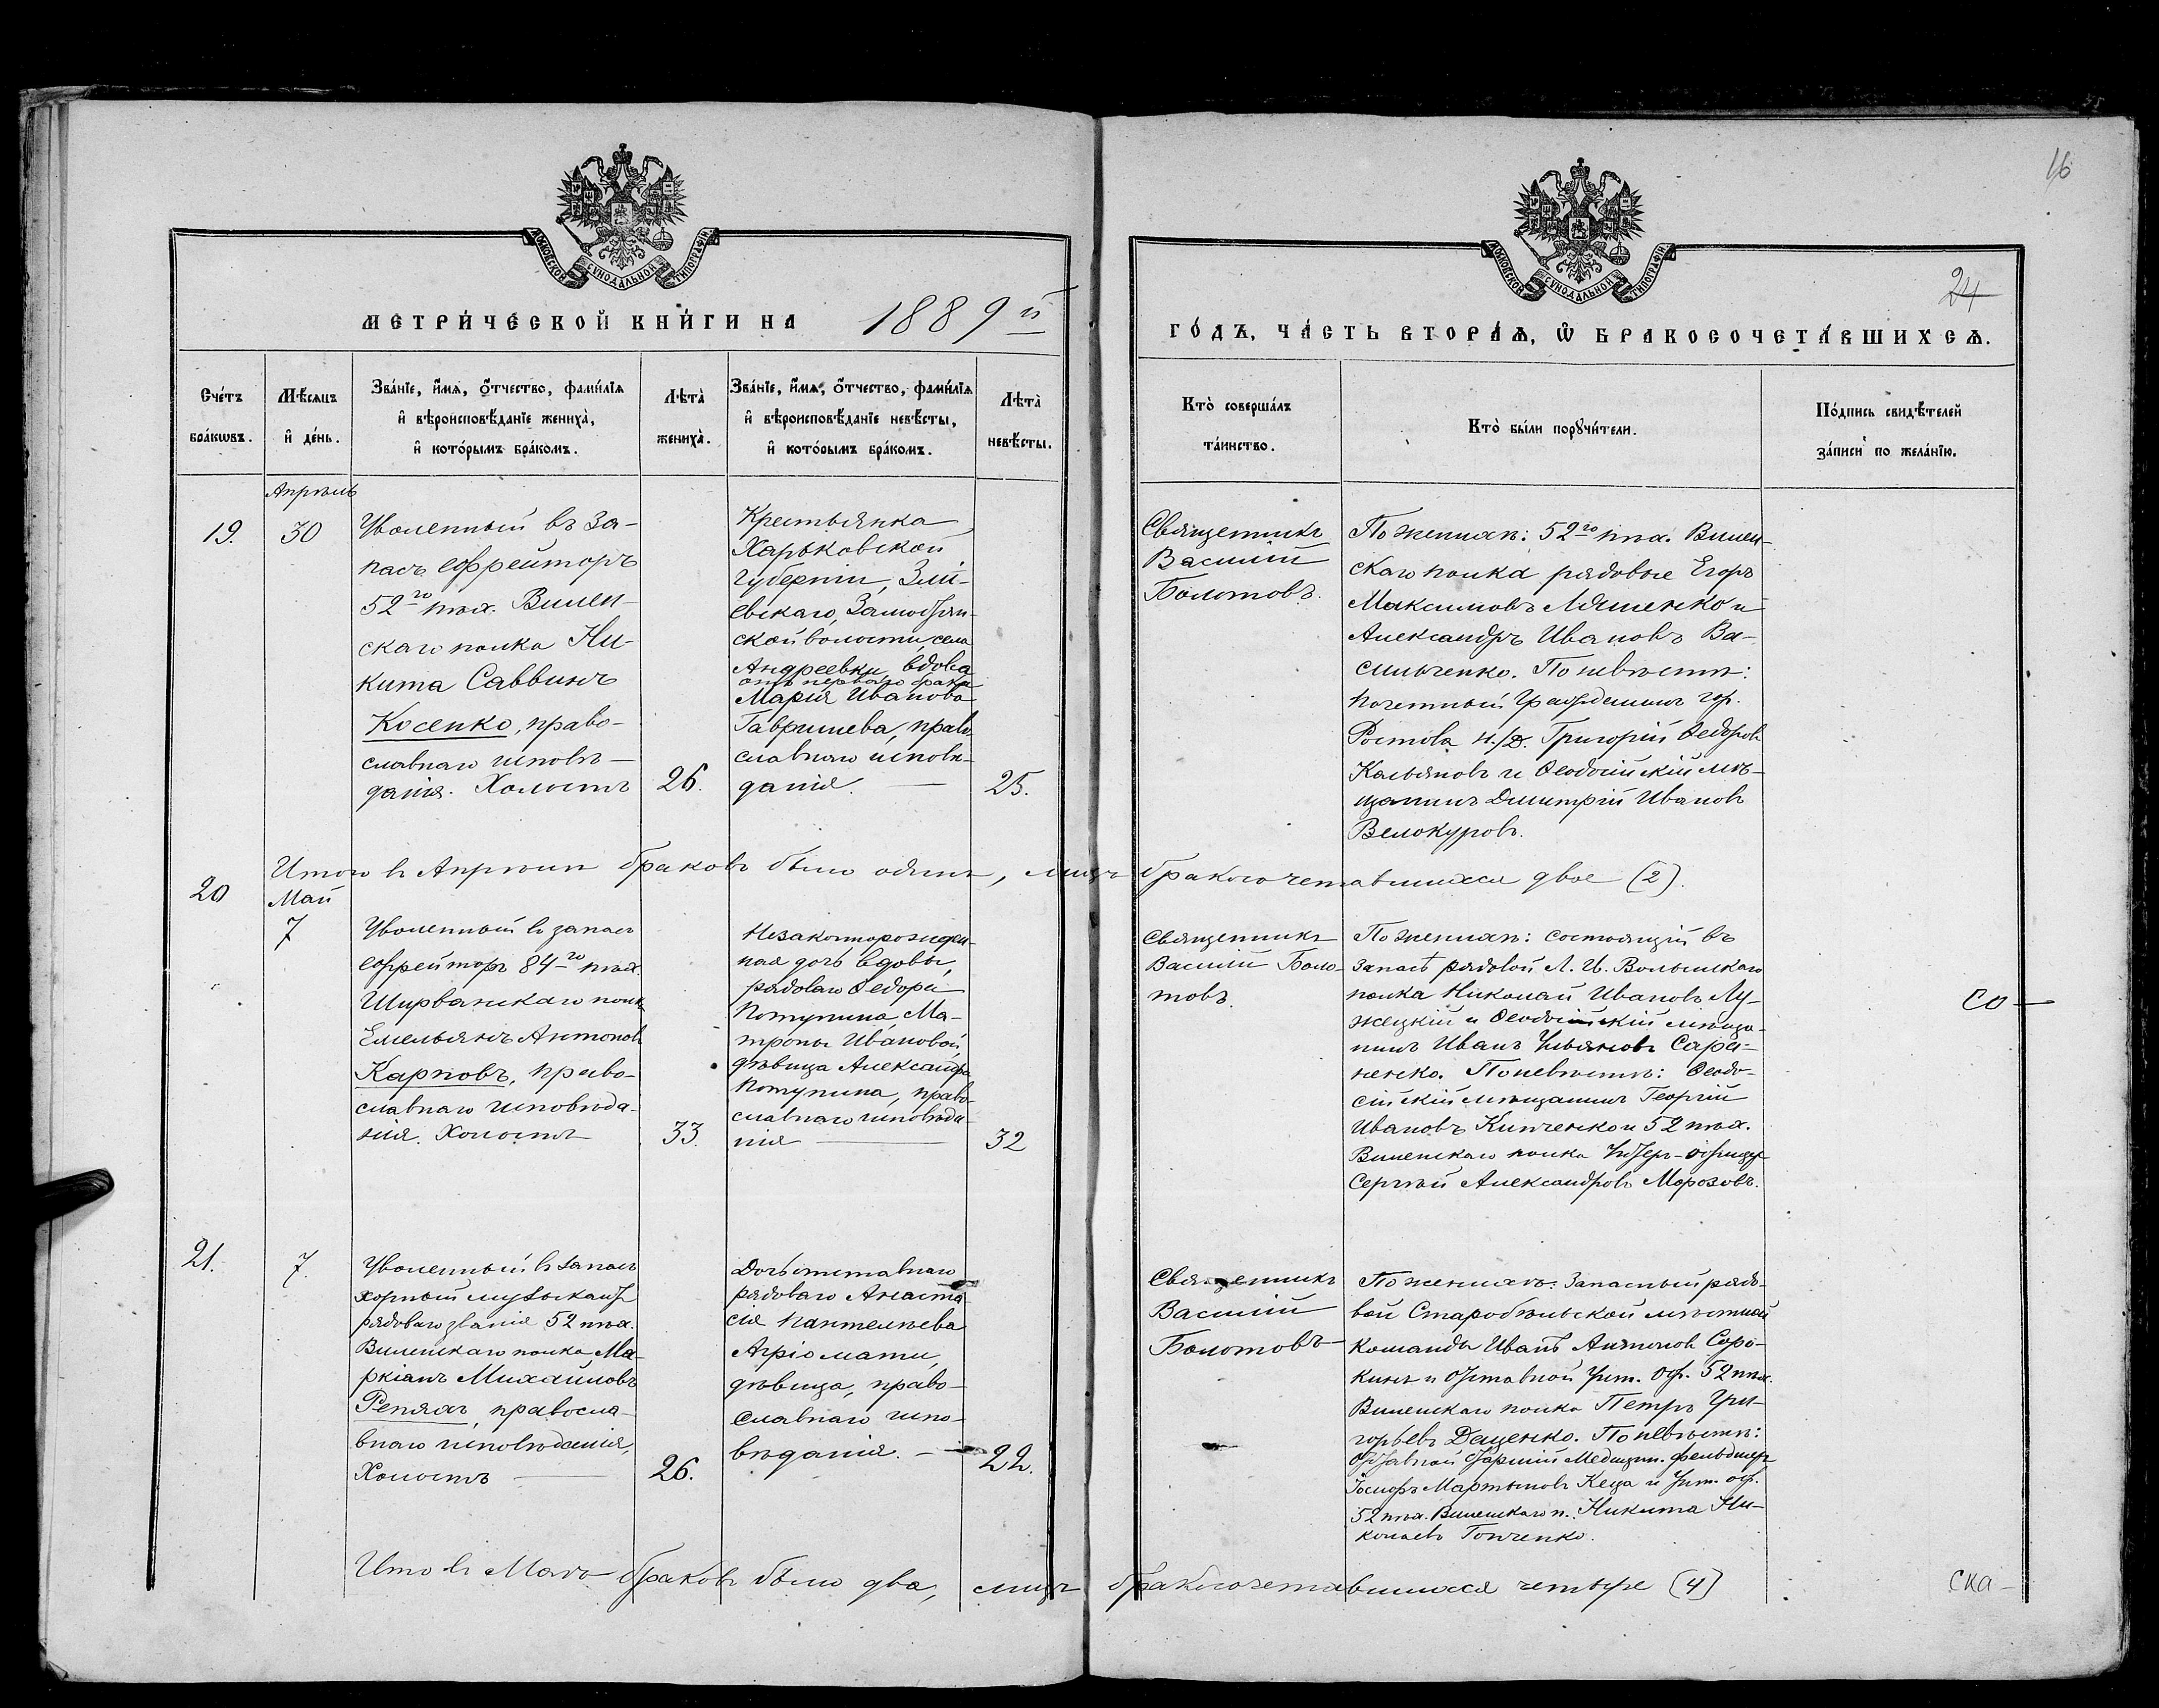 16
24
МОСКОВСКОЙ СѴНОДАЛЬНОЙ ТИПОГРАФІИ.
МОСКОВСКОЙ СѴНОДАЛЬНОЙ ТИПОГРАФІИ.
МЕТРИ́ЧЕСКОЙ КНИ́ГИ НА 1889й
ГО́ДЪ, ЧА́СТЬ ВТОРА́Ѧ, Ѡ҆ БРАКОСОЧЕТА́ВШИХСѦ.
Сче́тъ
бра́кѡвъ.
Мѣ́сяцъ
и҆ де́нь.
Зва́нїе, и҆́мѧ, ѻ҆́тчество, фами́лїѧ
и҆ вѣроисповѣ́данїе жениха̀,
и҆ кото́рымъ бра́комъ.
Лѣта̀
жениха̀.
Зва́нїе, и҆́мѧ, ѻ҆́тчество, фами́лїѧ
и҆ вѣроисповѣ́данїе невѣ́сты,
и҆ кото́рымъ бра́комъ.
Лѣта̀
невѣ́сты.
Кто̀ соверша́лъ
та́инство.
Кто̀ бы́ли порꙋчи́тели.
По́дпись свидѣ́телей
за́писи по жела́нїю.
Апрѣль
19.
30
Уволенный въ за-
пасъ ефрейторъ
52го пѣх. Вилен-
скаго полка Ни-
кита Саввинъ
Косенко, право-
славнаго исповѣ-
данія. Холостъ
26.
Крестьянка
Харьковской
Губерніи, Змі-
евскаго,
ской волости, села
Андреевки, вдова
отъ перваго брака
Марія Иванова
Гавришева, право-
славнаго исповѣ-
данія.
25.
Священникъ
Василій
Болотовъ.
По женихѣ: 52го пѣх. Вилен-
скаго полка рядовые Егоръ
Максимовъ Ляшенко и
Александръ Ивановъ Ва-
сильченко. По невѣстѣ:
почетный Гражданинъ гор.
Ростова н./Д. Григорій Ѳедоровъ
Кальяновъ и Ѳеодосійскій мѣ-
щанинъ Дмитрій Ивановъ
Белокуровъ.
Итого въ Апрѣлѣ браковъ было одинъ, лицъ бракосочетавшихся двое (2).
20
Май
7
Уволенный въ запасъ
ефрейторъ 84го пѣх.
Ширванскаго полка
Емельянъ Антоновъ
Карповъ, право-
славнаго исповѣда-
нія. Холостъ
33.
Незаконнорожден-
ная дочь вдовы,
рядоваго Ѳедора
Потупина Ма-
троны Ивановой,
дѣвица Александра
Потупина, право-
славнаго исповѣда-
нія
32
Священникъ
Василій Боло-
товъ.
По женихѣ: состоящій въ
запасѣ рядовой Л. Г. Волынскаго
полка Николай Ивановъ Лу-
жецкій и Ѳеодосійскій мѣща-
нинъ Иванъ Ульяновъ Сара-
ненко. По невѣстѣ: Ѳеодо-
сійскій мѣщанинъ Георгій
Ивановъ Кипченко и 52 пѣх.
Виленскаго полка Унтеръ-офицеръ
Сергѣй Александровъ Морозовъ.
со-
21.
7.
Уволенный въ запасъ
хорный музыкантъ
рядоваго званія 52 пѣх.
Виленскаго полка Ма-
ркіанъ Михайловъ
Репяхъ, правосла-
внаго исповѣданія,
Холостъ
26.
Дочь отставнаго
рядоваго Анаста-
сія Пантелѣева
Агріомати,
дѣвица, право-
славнаго испо-
вѣданія.
22.
Священникъ
Василій
Болотовъ
По женихѣ: Запасный рядо-
вой Старобѣльской мѣстной
команды Иванъ Антоновъ Соро-
кинъ и отставной Унт. Оф. 52 пѣх.
Виленскаго полка Петръ Гри-
горьевъ Даценко. По невѣстѣ:
Отставной Старшій Медицин. фельдшеръ
Іосифъ Мартыновъ Кеца и Унт. оф.
52 пѣх. Виленскаго п. Никита Ни-
колаевъ Гонченко.
Итого въ Маѣ браковъ было два, лицъ бракосочетавшихся четыре (4)
ска-